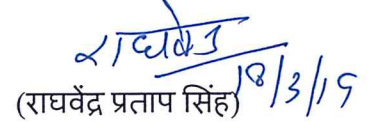 राघवेंद्र
18/3/19
(राघवेंद्र प्रताप सिंह)